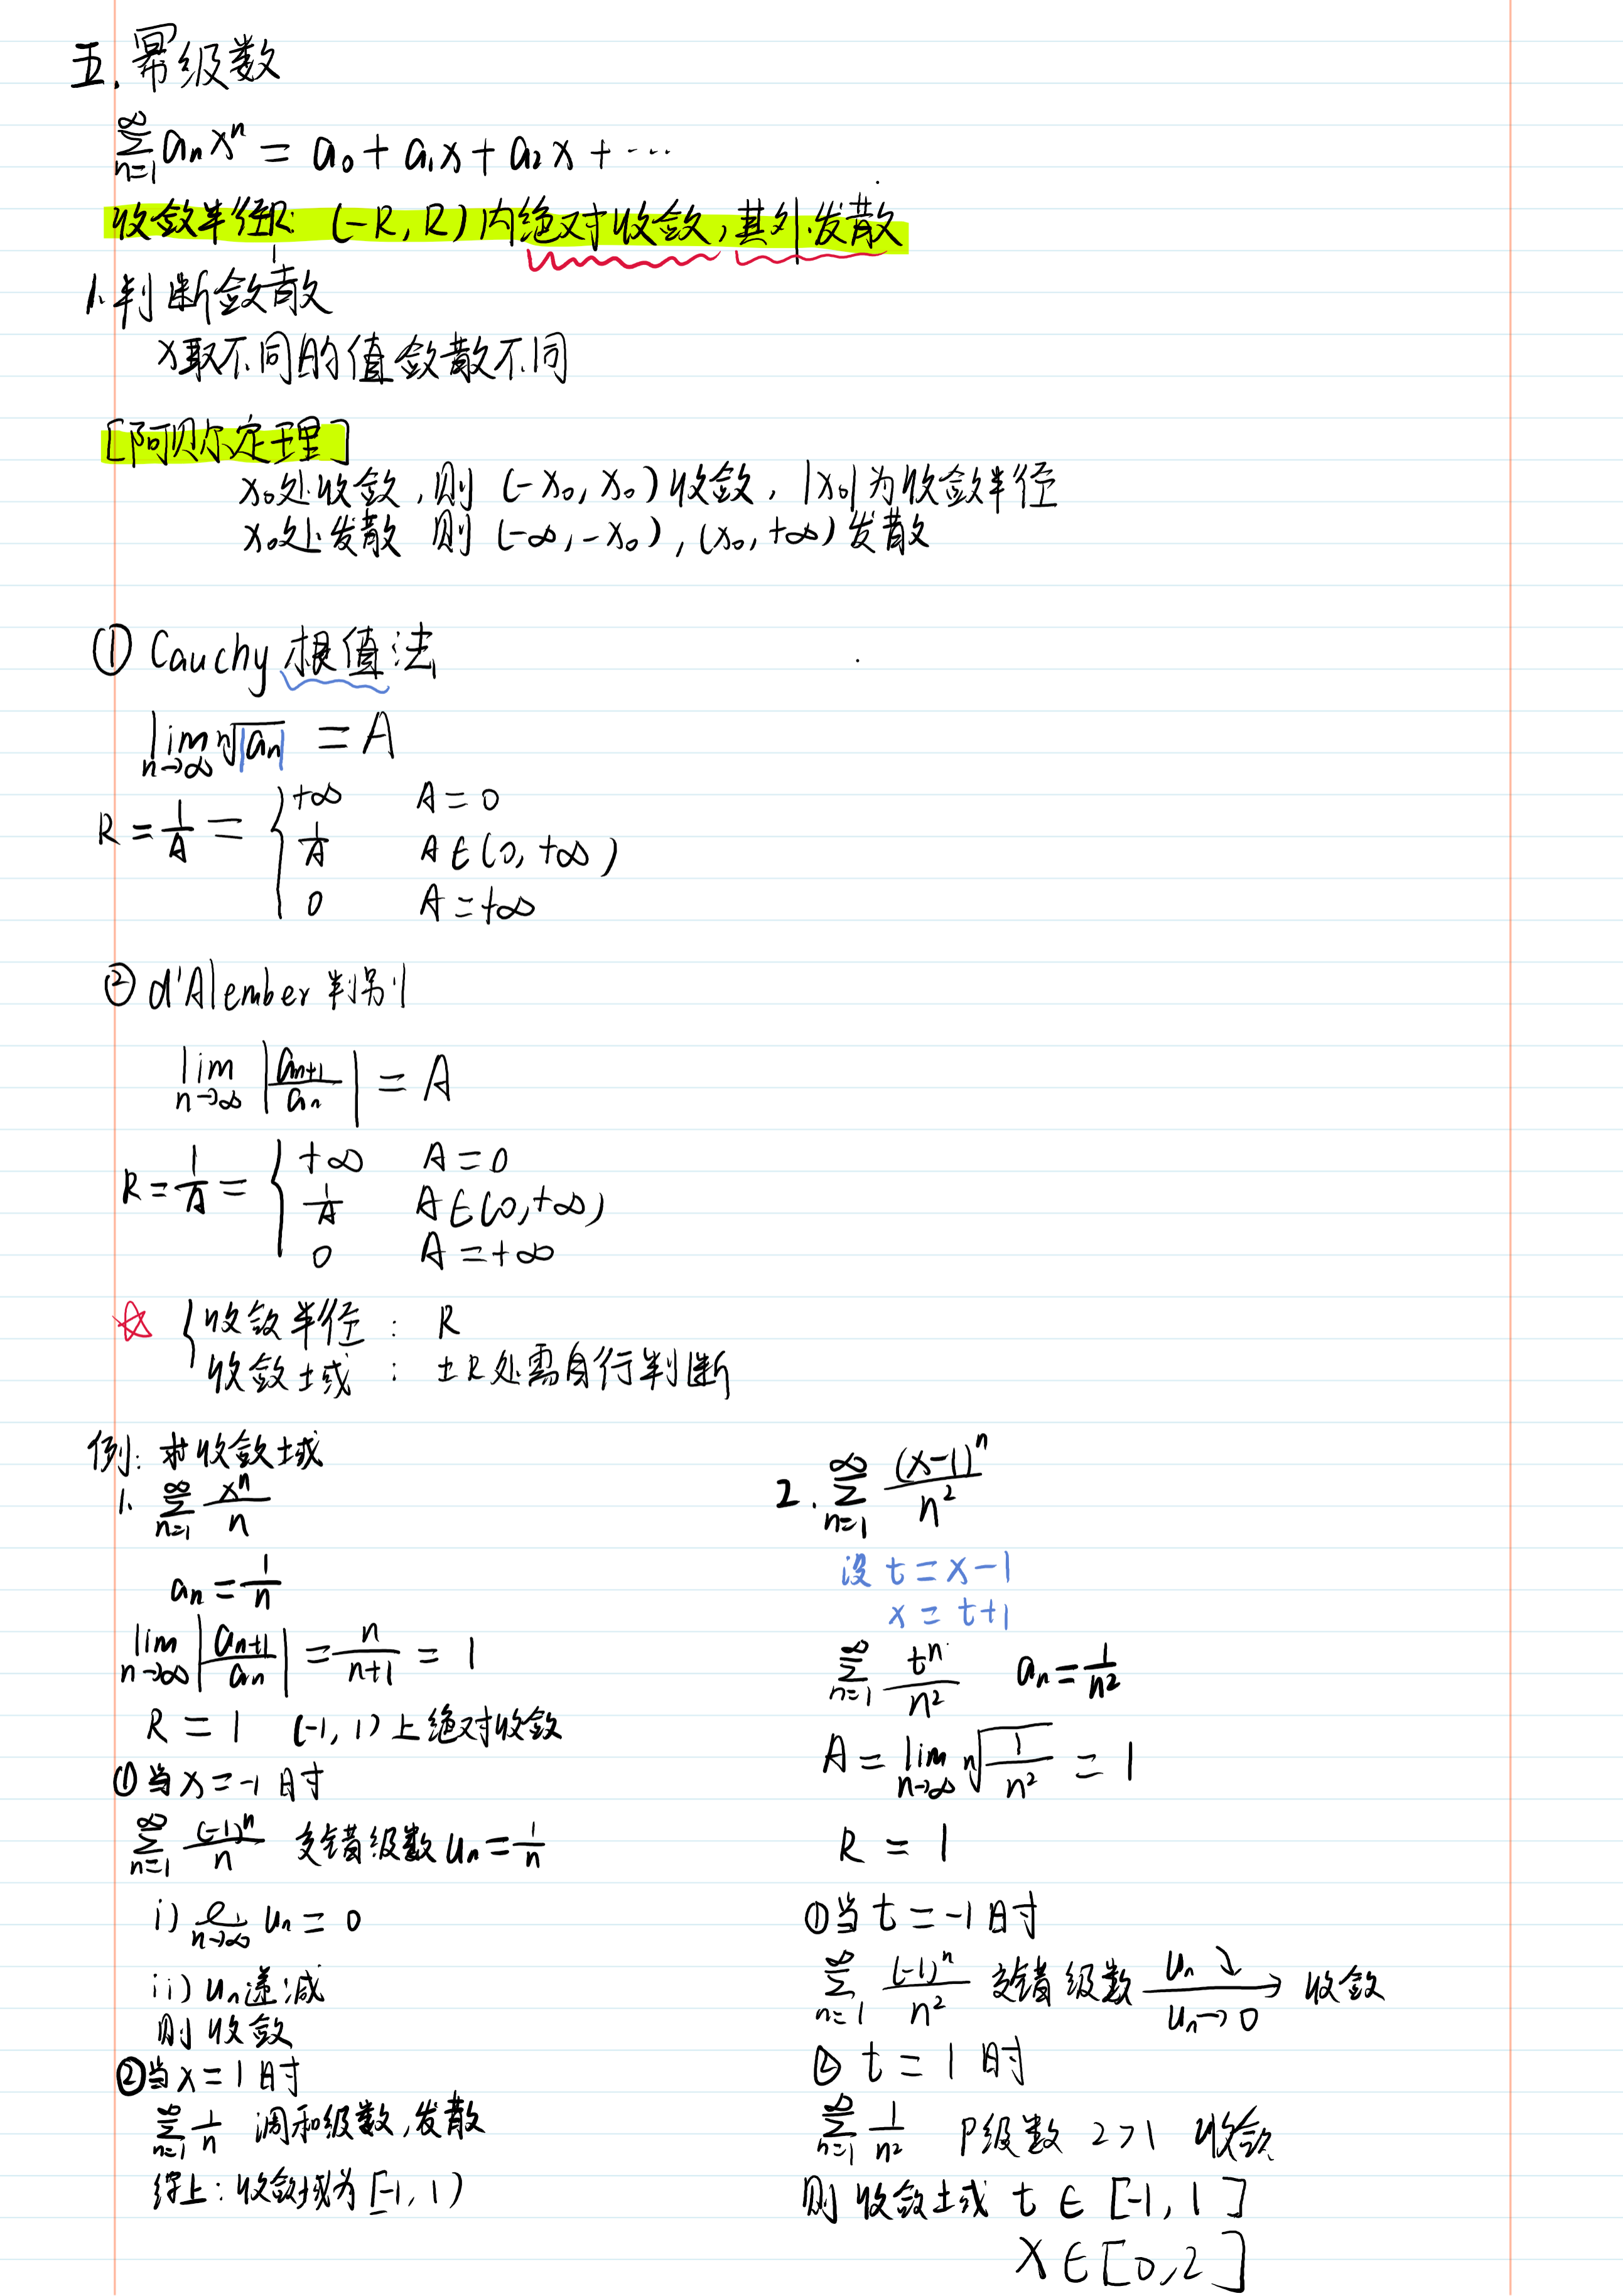 五.幂级数
∞∑n=1 aₙxⁿ = a₀ + a₁x + a₂x + ···
收敛半径R: (-R, R) 内绝对收敛, 其外发散
1.判断敛散
x取不同的值敛散不同
[阿贝尔定理]
x₀处收敛, 则 (-x₀, x₀) 收敛, |x₀|为收敛半径
x₀处发散 则 (-∞, -x₀), (x₀, +∞) 发散
① Cauchy 根值法
lim n→∞ ⁿ√|aₙ| = A
R = 1/A = { +∞ A = 0
1/A A∈(0, +∞)
0 A = +∞
② d'Alember 判别
lim n→∞ |aₙ₊₁/aₙ| = A
R = 1/A = { +∞ A = 0
1/A A∈(0, +∞)
0 A = +∞
☆ { 收敛半径 : R
收敛域 : ±R处需自行判断
例: 求收敛域
1. ∞∑n=1 xⁿ/n
aₙ = 1/n
lim n→∞ |aₙ₊₁/aₙ| = n/(n+1) = 1
R = 1 (-1, 1) 上绝对收敛
①当 x = -1 时
∞∑n=1 (-1)ⁿ/n 交错级数 uₙ = 1/n
i) n→∞ uₙ = 0
ii) uₙ递减
则收敛
②当 x = 1 时
∞∑n=1 1/n 调和级数, 发散
综上: 收敛域为 [-1, 1)
2. ∞∑n=1 (x-1)ⁿ/n²
设 t = x-1
x = t+1
∞∑n=1 tⁿ/n² aₙ = 1/n²
A = lim n→∞ ⁿ√(1/n²) = 1
R = 1
①当 t = -1 时
∞∑n=1 (-1)ⁿ/n² 交错级数 uₙ↘ uₙ→0 → 收敛
② t = 1 时
∞∑n=1 1/n² P级数 2>1 收敛
则 收敛域 t ∈ [-1, 1]
x ∈ [0, 2]